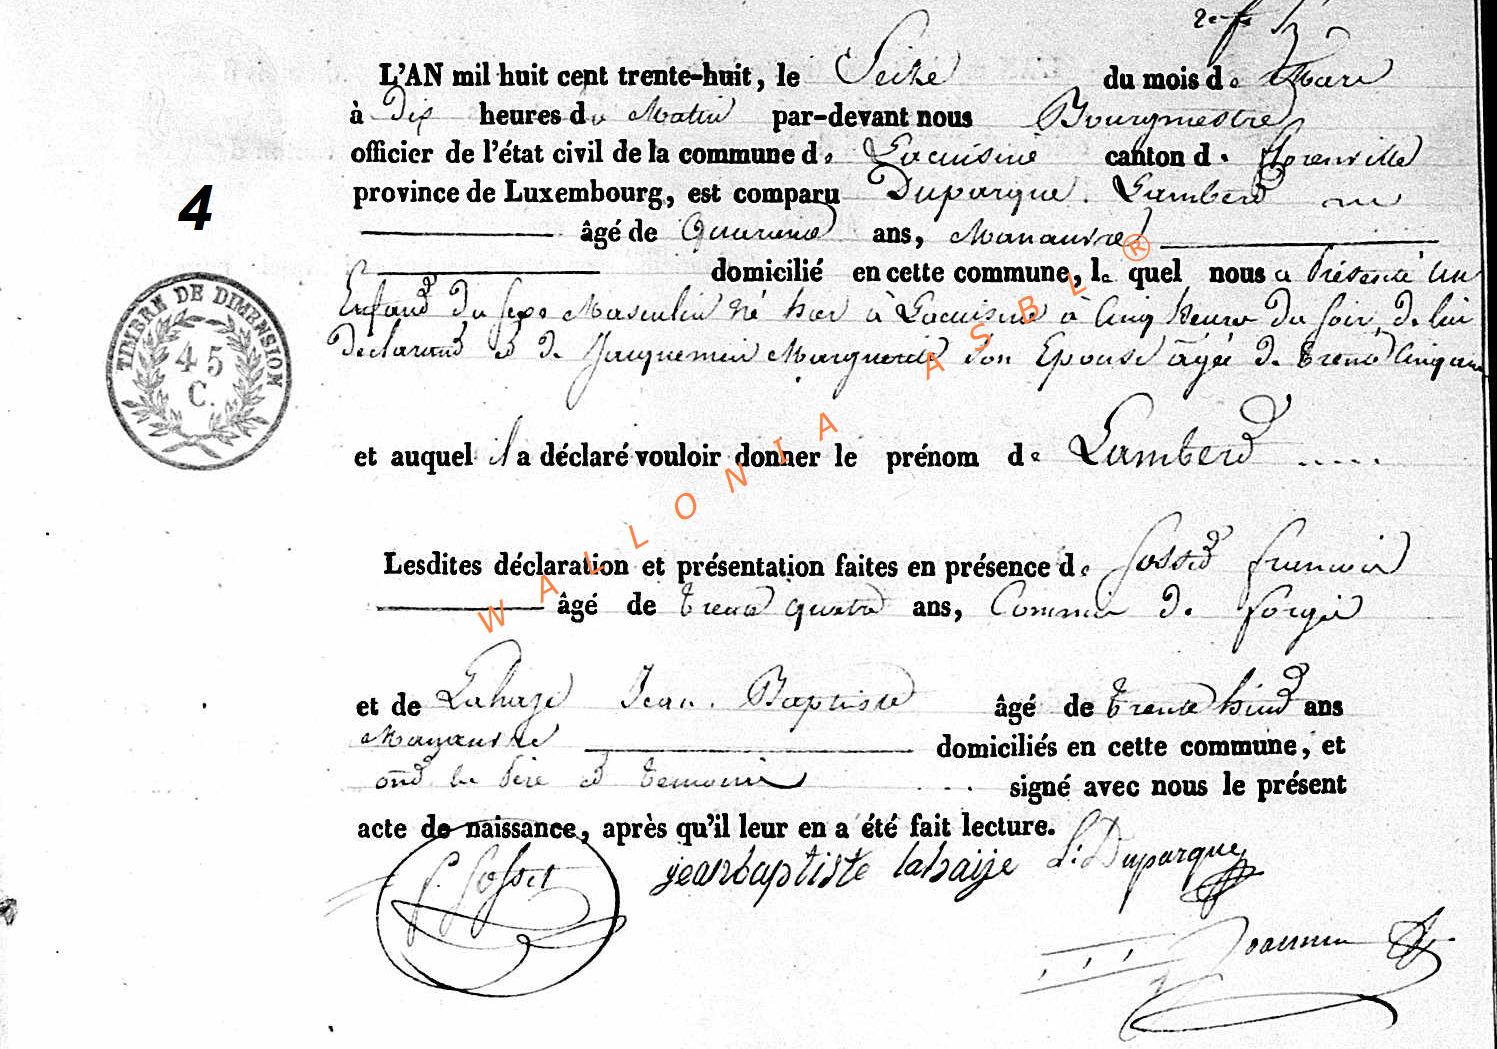 L'AN mil huit cent trente-huit, le Seize du mois de Mars
à Dix heures du Matin par-devant nous Bourgmestre
officier de l'état civil de la commune de Lacuisine canton de florenville
province de Luxembourg, est comparu Duparque Lambert
âgé de Quarante ans, Manœuvre
domicilié en cette commune, lequel nous a Présenté un
Enfant du sexe Masculin né hier à Lacuisine à Cinq heures du soir, de lui
Déclarant et de Jacquemin Marguerite son Epouse âgée de trente Cinq ans
et auquel il a déclaré vouloir donner le prénom de Lambert .....
Lesdites déclaration et présentation faites en présence de Gosset francois
âgé de trente quatre ans, Commis de forges
et de Lahaye Jean Baptiste âgé de trente huit ans
Manœuvre domiciliés en cette commune, et
ont les Père et temoins signé avec nous le présent
acte de naissance, après qu'il leur en a été fait lecture.
f. Gosset jeanbaptiste lahaije L. Duparque
4
TIMBRE DE DIMENSION
45
C.
WALLONIA ASBL ®